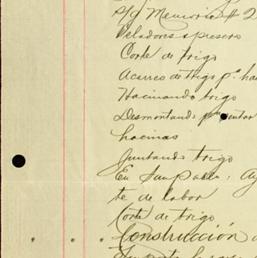 P/q Memoria # 2
Veladores a presero
Corte de trigo
Acarreo de trigo pª ha
Hacinando trigo
Desmontando pª
hacinas
Juntando trigo
En San Pablo: Ay
te de labor
Corte de trigo
Construcción